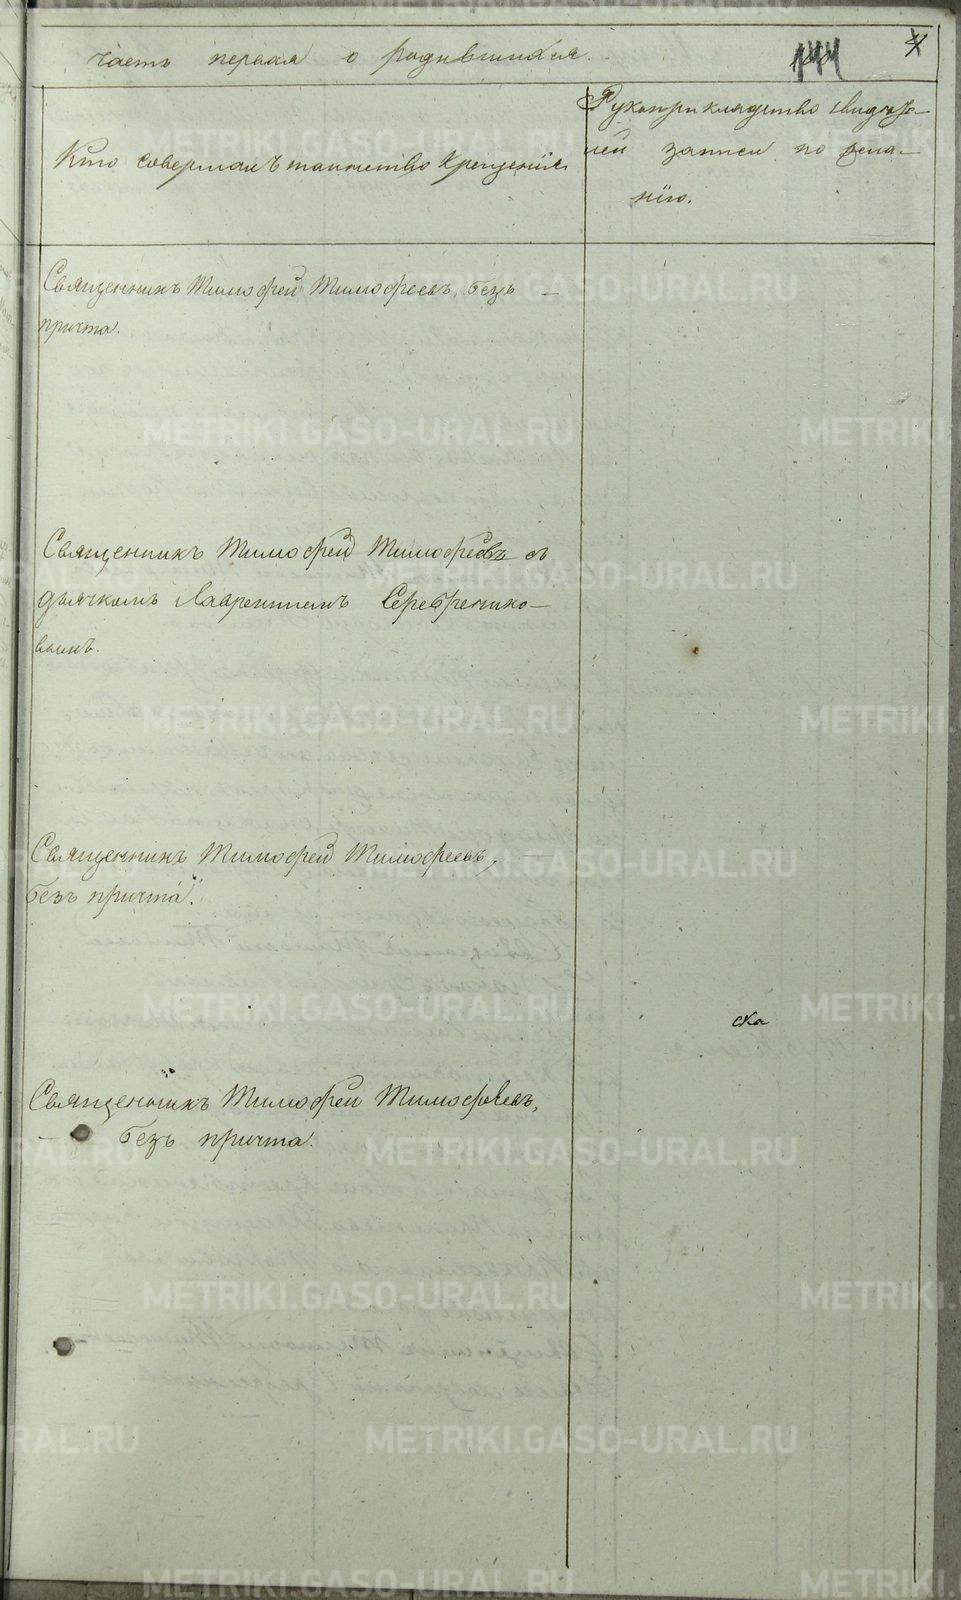 Часть первая о родившихся.
4
Кто совершалъ таинство крещенія.
Рукоприкладство свидѣте-
лей записи по жела-
нію.
Священникъ Тимофей Тимофеевъ, безъ
причта.
Священникъ Тимофей Тимофеевъ съ
дьячкомъ Лаврентіемъ Серебренико-
вымъ.
Священникъ Тимофей Тимофеевъ,
безъ причта.
ска
Священникъ Тимофей Тимофеевъ,
безъ причта.
METRIKI.GASO-URAL.RU